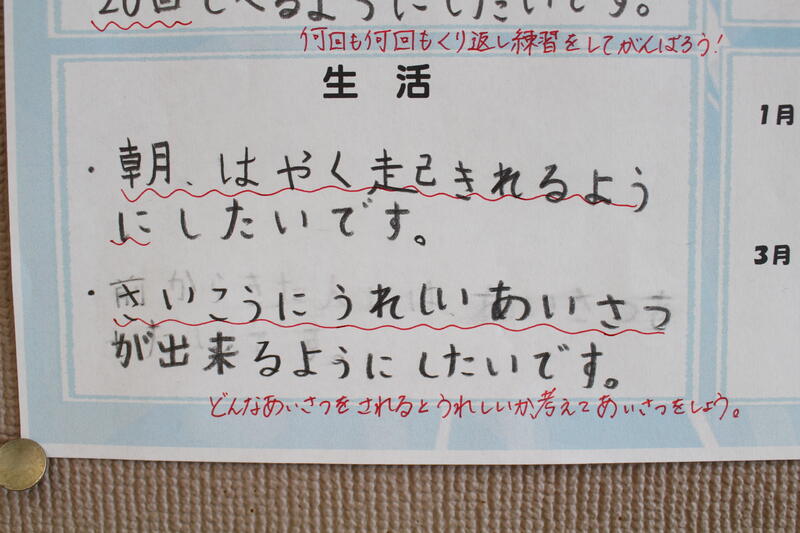 20回
るようにしたいです。
何回も何回もくり返し練習をしてがんばろう!
生活
・朝、はやく起きれるよう
にしたいです。
・さいこうにうれしいあいさつ
が出来るようにしたいです。
どんなあいさつをされるとうれしいか考えてあいさつをしよう。
1月
3月